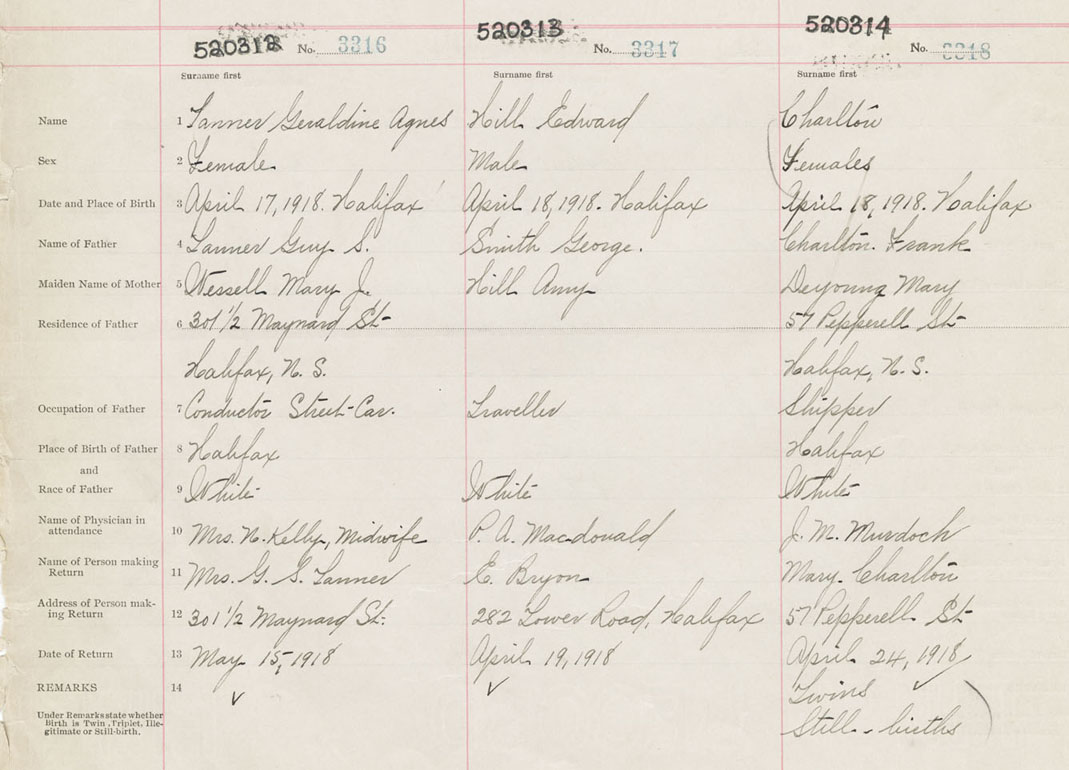 520312 No. 3316 520313 No. 3317 520314 No. 3318
Surname first Surname first Surname first
Name 1 Tanner Geraldine Agnes Hill Edward Charlton
Sex 2 Female Male Females
Date and Place of Birth 3 April 17, 1918. Halifax April 18, 1918. Halifax April 18, 1918. Halifax
Name of Father 4 Tanner Guy S. Smith George. Charlton. Frank
Maiden Name of Mother 5 Wessell Mary J. Hill Amy Deyoung Mary
Residence of Father 6 301 1/2 Maynard St- 57 Pepperell St-
Halifax, N. S. Halifax, N. S.
Occupation of Father 7 Conductor Street-Car. Traveller Shipper
Place of Birth of Father 8 Halifax Halifax
and
Race of Father 9 White White White
Name of Physician in
attendance 10 Mrs. N. Kelly, Midwife P. A. Macdonald J. M. Murdoch
Name of Person making
Return 11 Mrs. G. S. Tanner E. Bryon Mary. Charlton
Address of Person mak-
ing Return 12 301 1/2 Maynard St. 282 Tower Road, Halifax 57 Pepperell St-
Date of Return 13 May 15, 1918 April 19, 1918 April 24, 1918
REMARKS 14 Twins
Under Remarks state whether
Birth is Twin, Triplet, Ille-
gitimate or Still-birth. Still-births